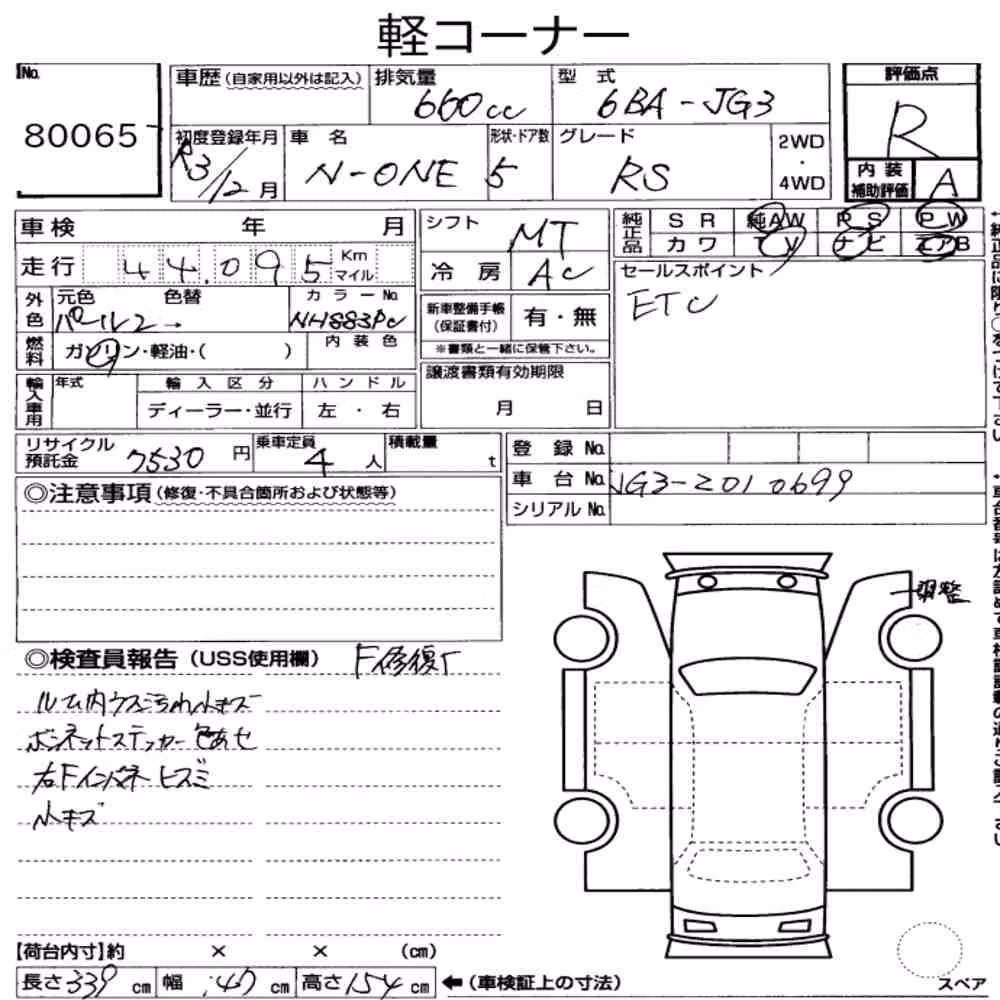 軽コーナー
No.
80065
車歴(自家用以外は記入)
排気量
660cc
型 式
6BA-JG3
評価点
R
初度登録年月
R3/12月
車 名
N-ONE
形状・ドア数
5
グレード
RS
2WD
・
4WD
内 装
補助評価
A
車検 年 月
シフト
MT
純正品
SR
純AW
PS
PW
カワ
TV
ナビ
エアB
走行
44,095
Km
マイル
冷 房
AC
セールスポイント
ETC
外色
元色 色替
パール2→
カラーNo.
NH883PC
新車整備手帳
(保証書付)
有・無
※書類と一緒に保管下さい。
燃料
ガソリン・軽油・( )
内装色
輸入車用
年式
輸入区分
ハンドル
ディーラー・並行
左・右
譲渡書類有効期限
月 日
リサイクル
預託金
7530円
乗車定員
4人
積載量
t
登 録 No.
車 台 No.
JG3-2010699
シリアル No.
◎注意事項(修復・不具合箇所および状態等)
調整
◎検査員報告(USS使用欄)
F修復
ルーム内ウス汚れ小キズ
ボンネットステッカー色あせ
右Fインパネ ヒズミ
小キズ
【荷台内寸】約 × × (cm)
長さ339cm
幅147cm
高さ154cm
←(車検証上の寸法)
スペア